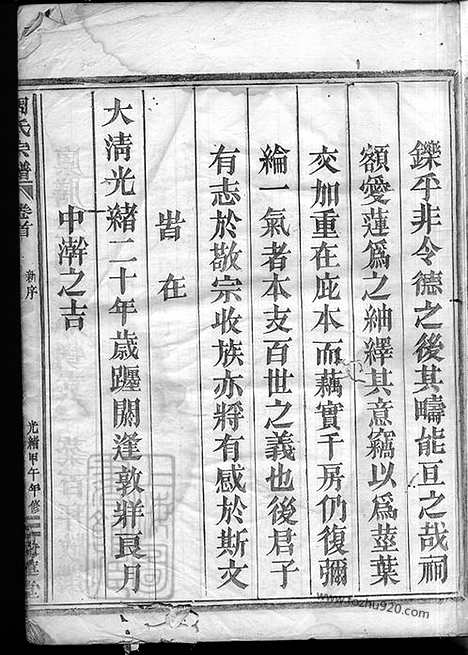 鑠乎非令德之後其疇能亘之哉祠
額愛蓮爲之紬繹其意竊以爲莖葉
交加重在庇本而藕實千房仍復彌
綸一氣者本支百世之義也後君子
有志於敬宗收族亦將有感於斯文
昔在
大清光緒二十年歲躔閼逢敦牂良月
中澣之吉
周氏宗譜
卷首
新序
光緒甲午年修
堂
www.fozhu920.com